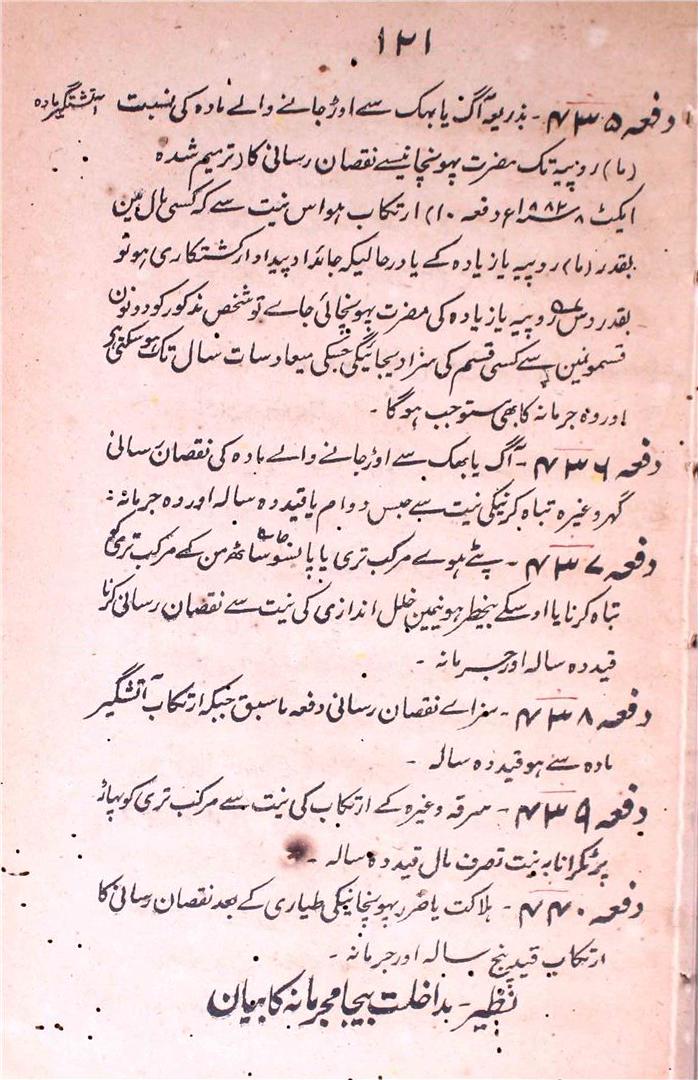 ۱۲۱
دفعہ ۴۳۵ - بذریعہ آگ یا بھک سے اوڑ جانے والے مادہ کی نسبت آتشگیر مادہ
(ما) روپیہ تک مضرت پہونچانیسے نقصان رسانی کا (ترمیم شدہ
ایکٹ ۸ ۱۸۸۲ء دفعہ ۱۰) ارتکاب ہو اس نیت سے کہ کسی مال مین
بقدر (ما) روپیہ یا زیادہ کے یا درحالیکہ جائداد پیداوار کشتکاری ہو تو
بقدر دس روپیہ یا زیادہ کی مضرت پہونچائی جاے تو شخص مذکور کو دونون
قسمونمین سے کسی قسم کی سزا دیجائیگی جسکی میعاد سات سال تک ہو سکتی ہی
اور وہ جرمانہ کا بھی مستوجب ہوگا -
دفعہ ۴۳۶ - آگ یا بھک سے اوڑ جانے والے مادہ کی نقصان رسانی
گہر وغیرہ تباہ کرنیکی نیت سے حبس دوام یا قید دہ سالہ اور وہ جرمانہ :
دفعہ ۴۳۷ - پٹے ہوے مرکب تری یا پانسو ساٹھ من کے مرکب تری کو
تباہ کرنا یا اوسکے بیخطر ہونیمین خلل اندازی کی نیت سے نقصان رسانی کرنا
قید دہ سالہ اور جرمانہ -
دفعہ ۴۳۸ - سزاے نقصان رسانی دفعہ ماسبق جبکہ ارتکاب آتشگیر
مادہ سے ہو قید دہ سالہ -
دفعہ ۴۳۹ - سرقہ وغیرہ کے ارتکاب کی نیت سے مرکب تری کو پہاڑ
پر ٹکرانا بہ نیت تصرف مال قید دہ سالہ -
دفعہ ۴۴۰ - ہلاکت یا ضرر پہونچانیکی طیاری کے بعد نقصان رسانی کا
ارتکاب قید پنج سالہ اور جرمانہ -
نظیر - مداخلت بیجا مجرمانہ کا بیان